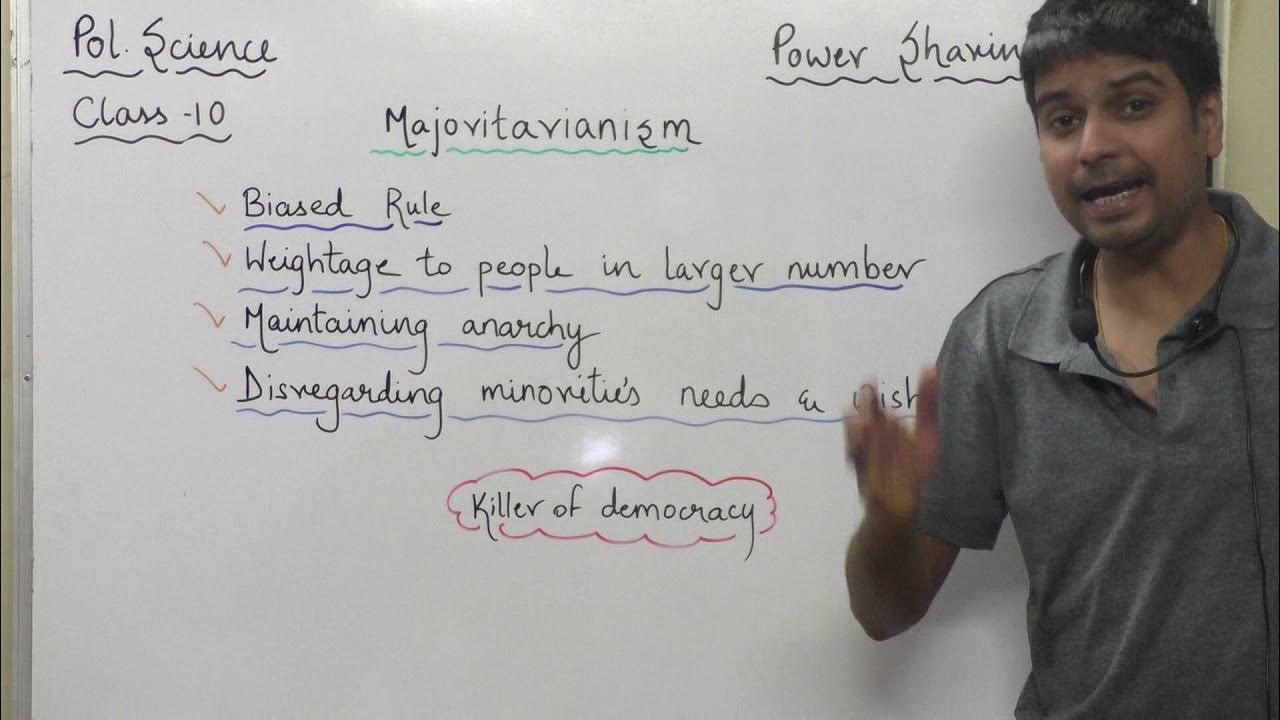 Pol. Science
Power Sharin
Class -10
Majoritarianism
Biased Rule
Weightage to people in larger number
Maintaining anarchy
Disregarding minoritie's needs &
Killer of democracy